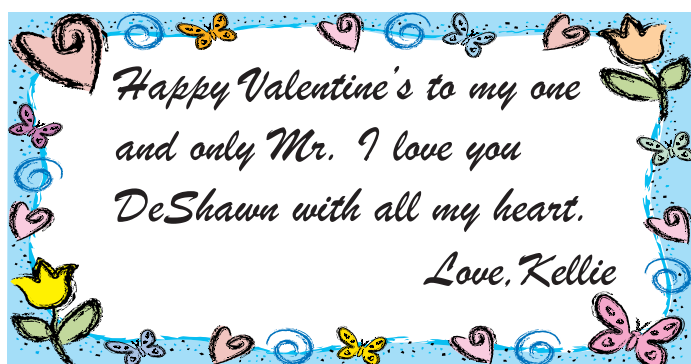 Happy Valentine's to my one
and only Mr. I love you
DeShawn with all my heart.
Love, Kellie